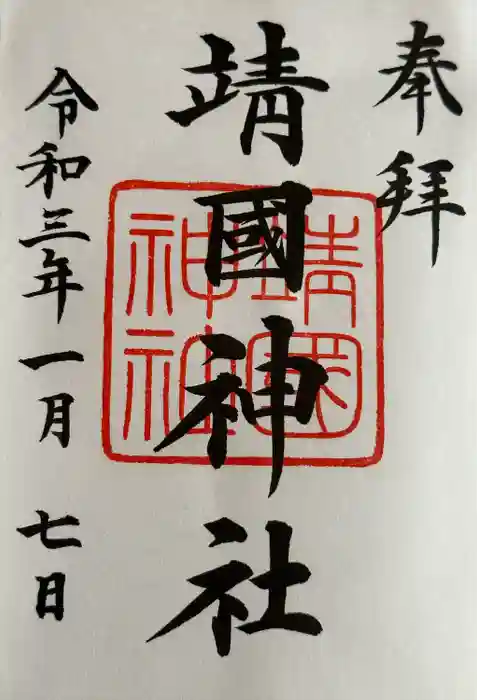 奉拝
靖國神社
靖國神社
令和三年一月七日